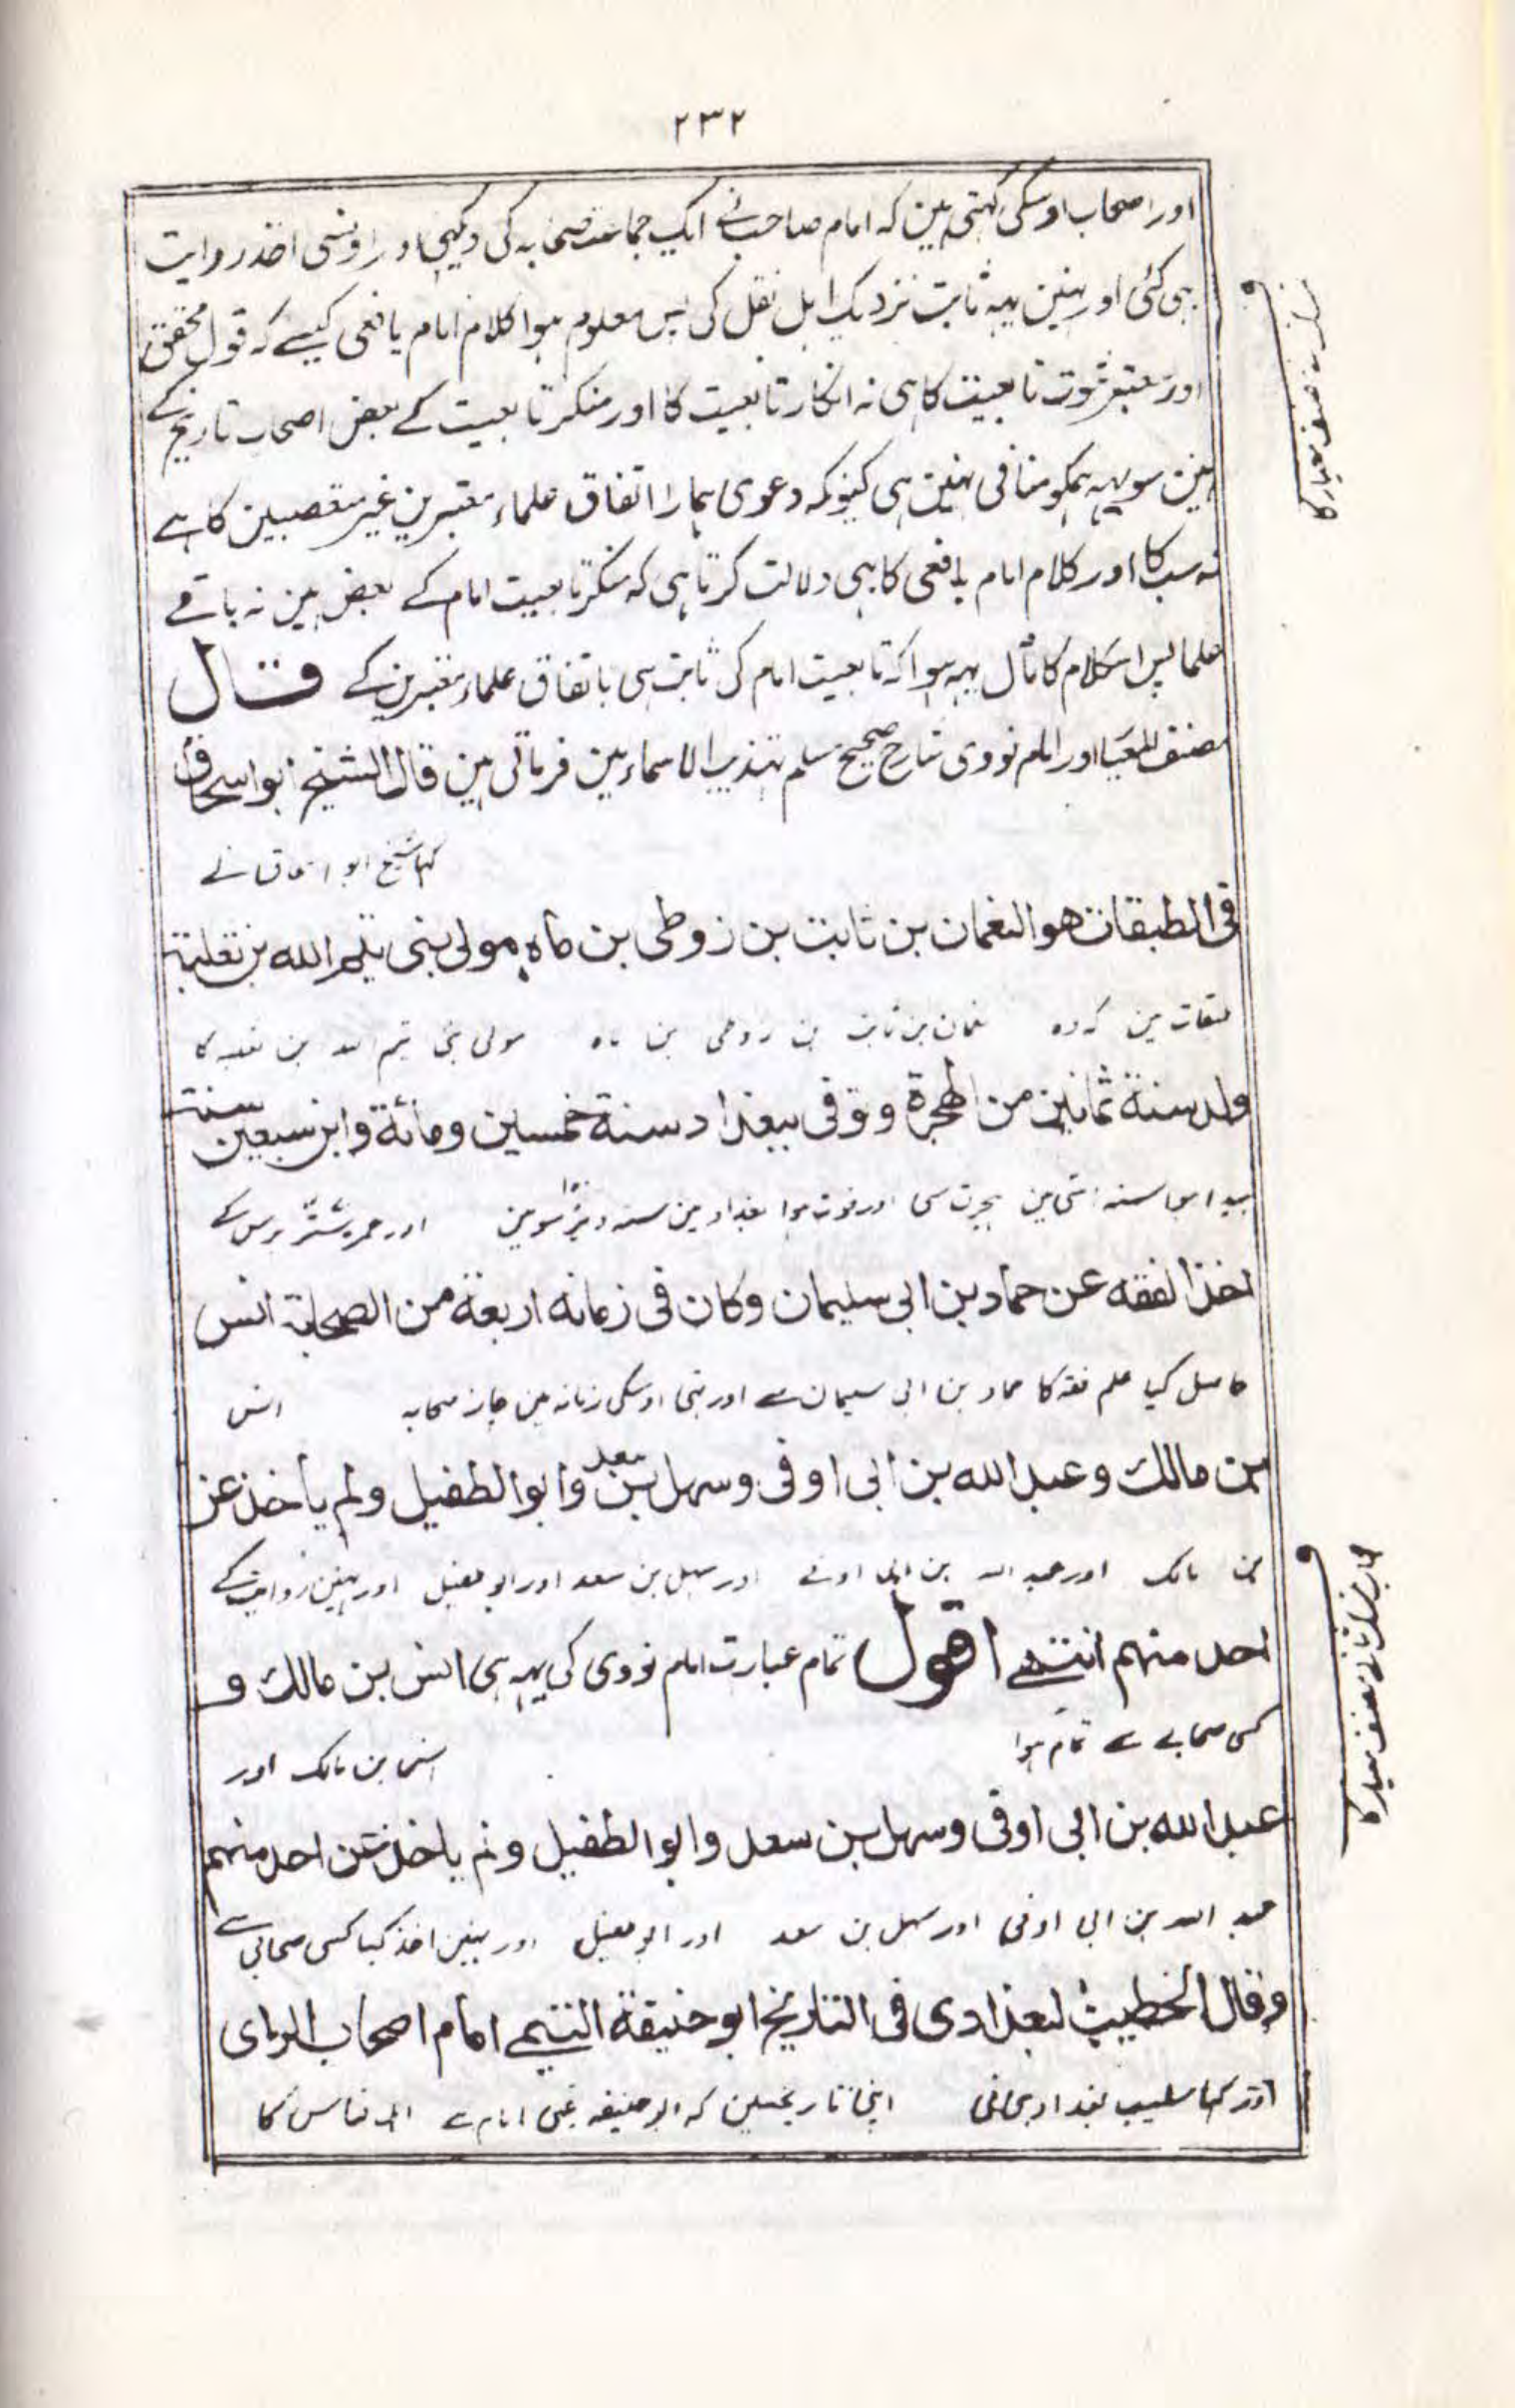 ۲۳۲
اور اصحاب اوسکی کہتی ہین کہ امام صاحب نے ایک جماعت صحابہ کی دیکھی اور اونسی اخذ روایت
بہی کئی اور نہین یہہ ثابت نزدیک اہل نقل کی پس معلوم ہوا کلام امام یافعی کیسے کہ قول محقق
اور معتبر ثبوت تابعیت کا ہی نہ انکار تابعیت کا اور منکر تابعیت کے بعض اصحاب تاریخ کے
ہین سو یہہ ہمکو منافی نہین ہی کیونکہ دعوی ہمارا اتفاق علماء معتبرین غیر متعصبین کا ہے
نہ سب کا اور کلام امام یافعی کا بہی دلالت کرتا ہی کہ منکر تابعیت امام کے بعض ہین نہ باقے
علما پس اس کلام کا مآل یہہ ہوا کہ تابعیت امام کی ثابت ہی باتفاق علماء معتبرین کے قال
مصنف المعیار اور امام نووی شارح صحیح مسلم تہذیب الاسماء مین فرماتی ہین قال الشیخ ابو اسحاق
کہا شیخ ابو اسحاق نے
فی الطبقات هو النعمان بن ثابت بن زوطی بن ماہ مولی بنی تیم الله بن ثعلبة
طبقات مین کہ وہ نعمان بن ثابت بن زوطی بن ماہ مولی بنی تیم اللہ بن ثعلبہ کا
ولد سنة ثمانین من الهجرة وتوفی ببغداد سنة خمسین ومائة وابن سبعین سنة
پیدا ہوا سنہ اسّی مین ہجرت سی اور فوت ہوا بغداد مین سنہ ڈیڑہ سو مین اور عمر ستّر برس کے
اخذ الفقه عن حماد بن ابی سلیمان وکان فی زمانه اربعة من الصحابة انس
حاصل کیا علم فقہ کا حماد بن ابی سلیمان سے اور تہی اوسکی زمانہ مین چار صحابہ انس
بن مالک وعبد الله بن ابی اوفی وسهل بن سعد وابو الطفیل ولم یأخذ عن
بن مالک اور عبد اللہ بن ابی اوفے اور سہل بن سعد اور ابو طفیل اور نہین روایت کے
احد منهم انتهے اقول تمام عبارت امام نووی کی یہہ ہی انس بن مالک و
کسی صحابے سے تمام ہوا انس بن مالک اور
عبد الله بن ابی اوفی وسهل بن سعد وابو الطفیل ولم یاخذ عن احد منهم
عبد اللہ بن ابی اوفی اور سہل بن سعد اور ابو طفیل اور نہین اخذ کیا کسی صحابی سے
وقال الخطیب البغدادی فی التاریخ ابو حنیفة التیمے امام اصحاب الرای
اور کہا خطیب بغدادی نی اپنی تاریخ مین کہ ابو حنیفہ تیمی امام ہے
مصنف معیار کا
مصنف معیار کا